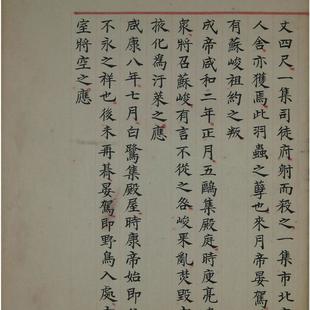 丈四尺一集司徒府射而殺之一集市北
人舍亦獲焉此羽蟲之孽也來月帝晏駕
有蘇峻祖約之叛
成帝咸和二年正月五鷗集殿庭時庾亮
衆將召蘇峻有言不從之咎峻果亂焚毀
掖化爲汙萊之應
咸康八年七月白鷺集殿屋時康帝始即
不永之祥也後未再朞晏駕即野鳥入處
室將空之應